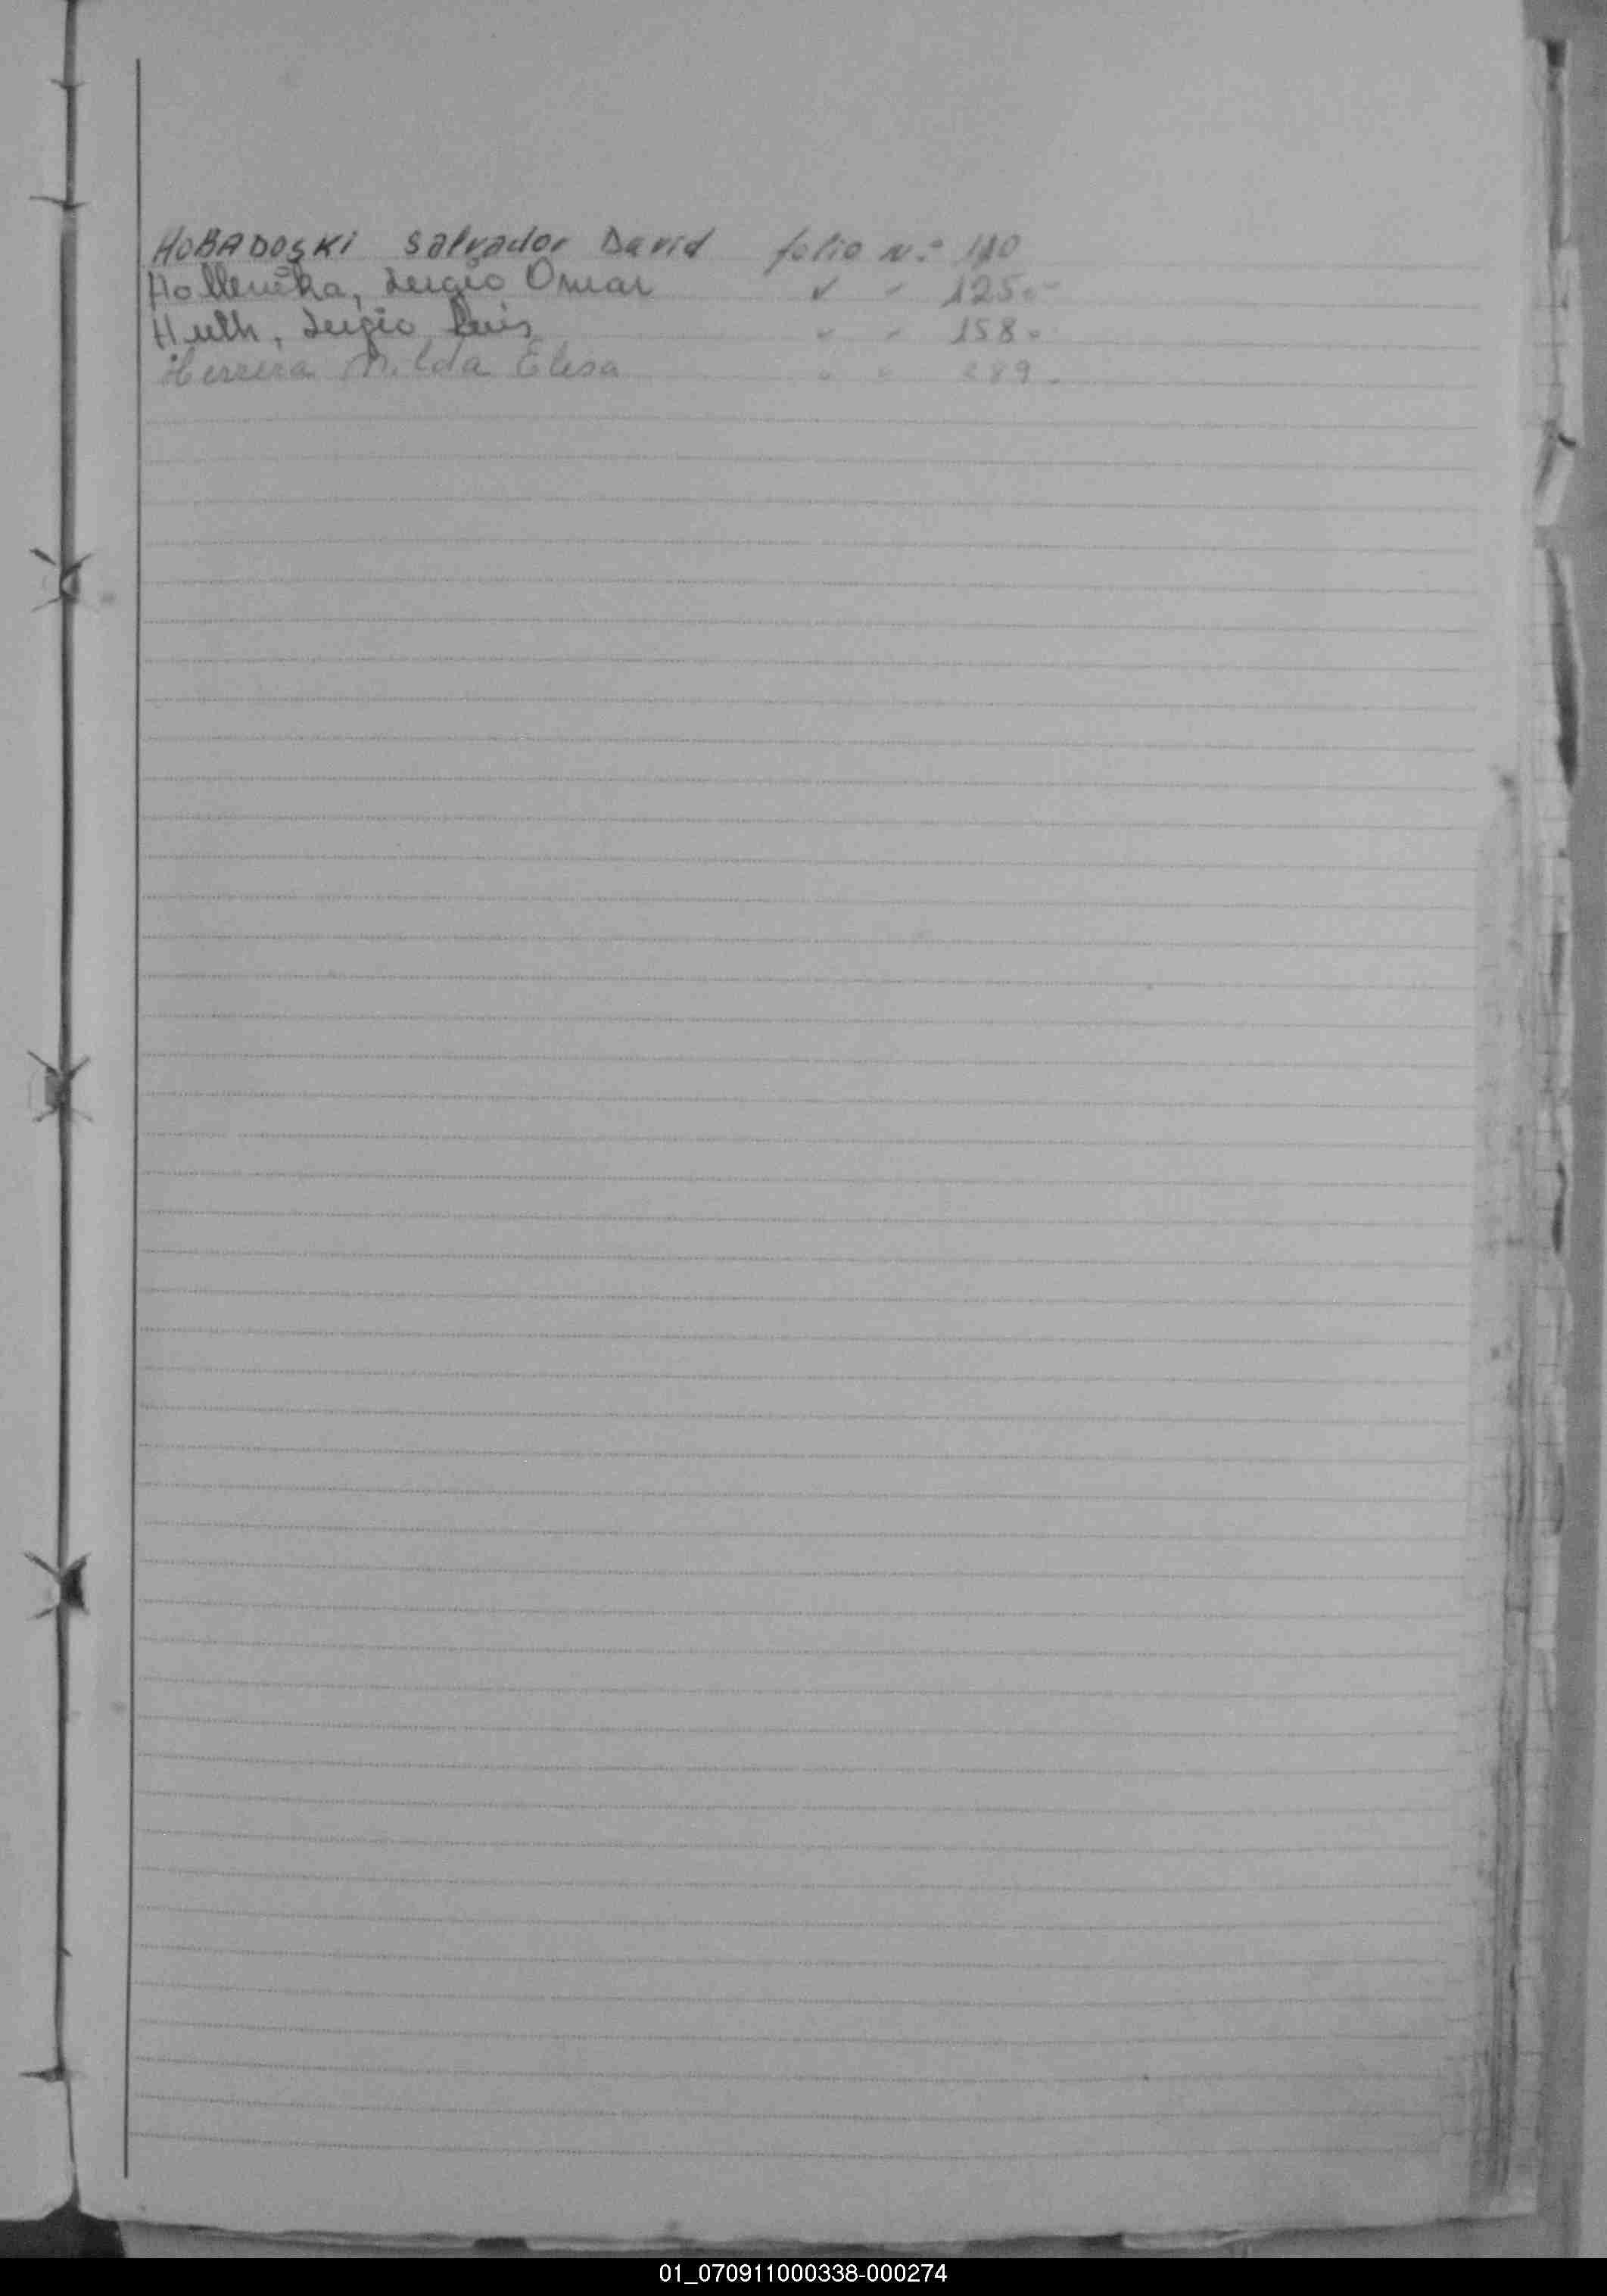 HOBADOSKI Salvador David folio N.º 110
Hollenika, Sergio Omar " " 125.-
Huth, Sergio Luis " " 158.-
Herrera Nilda Elesa " " 289.
01_070911000338-000274